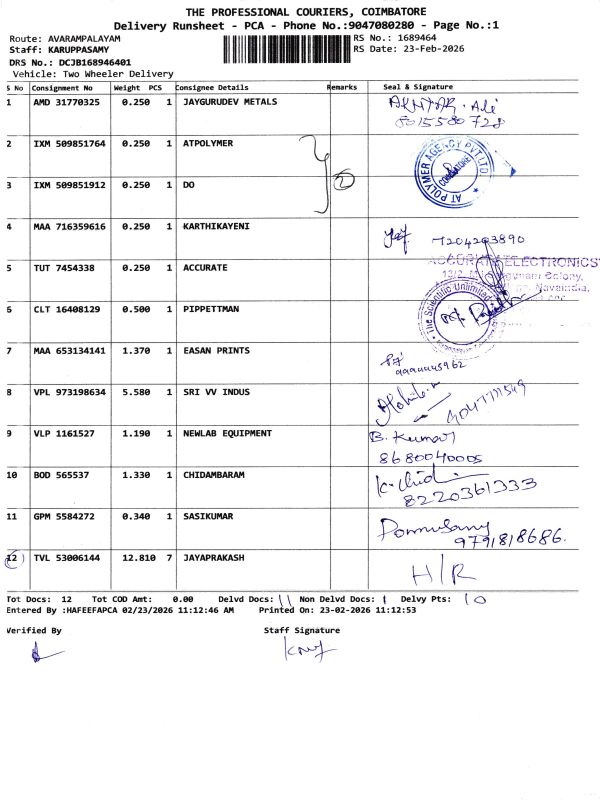 THE PROFESSIONAL COURIERS, COIMBATORE
Delivery Runsheet - PCA - Phone No.:9047080280 - Page No.:1
Route: AVARAMPALAYAM RS No.: 1689464
Staff: KARUPPASAMY RS Date: 23-Feb-2026
DRS No.: DCJB168946401
Vehicle: Two Wheeler Delivery
S No Consignment No Weight PCS Consignee Details Remarks Seal & Signature
1 AMD 31770325 0.250 1 JAYGURUDEV METALS
8015580728
2 IXM 509851764 0.250 1 ATPOLYMER
AT POLYMER AGENCY PVT LTD
COIMBATORE
3 IXM 509851912 0.250 1 DO 2
4 MAA 716359616 0.250 1 KARTHIKAYENI
7204203890
5 TUT 7454338 0.250 1 ACCURATE
ACCURATE ELECTRONICS
Colony,
Navaindia,
6 CLT 16408129 0.500 1 PIPPETTMAN
The Scientific Unlimited
7 MAA 653134141 1.370 1 EASAN PRINTS
8 VPL 973198634 5.580 1 SRI VV INDUS
9 VLP 1161527 1.190 1 NEWLAB EQUIPMENT B. Kumar
8680040005
10 BOD 565537 1.330 1 CHIDAMBARAM K. Chid
8220361333
11 GPM 5584272 0.340 1 SASIKUMAR Ponnusamy
9791818686.
12 TVL 53006144 12.810 7 JAYAPRAKASH H/R
Tot Docs: 12 Tot COD Amt: 0.00 Delvd Docs: 11 Non Delvd Docs: 1 Delvy Pts: 10
Entered By :HAFEEFAPCA 02/23/2026 11:12:46 AM Printed On: 23-02-2026 11:12:53
Verified By Staff Signature